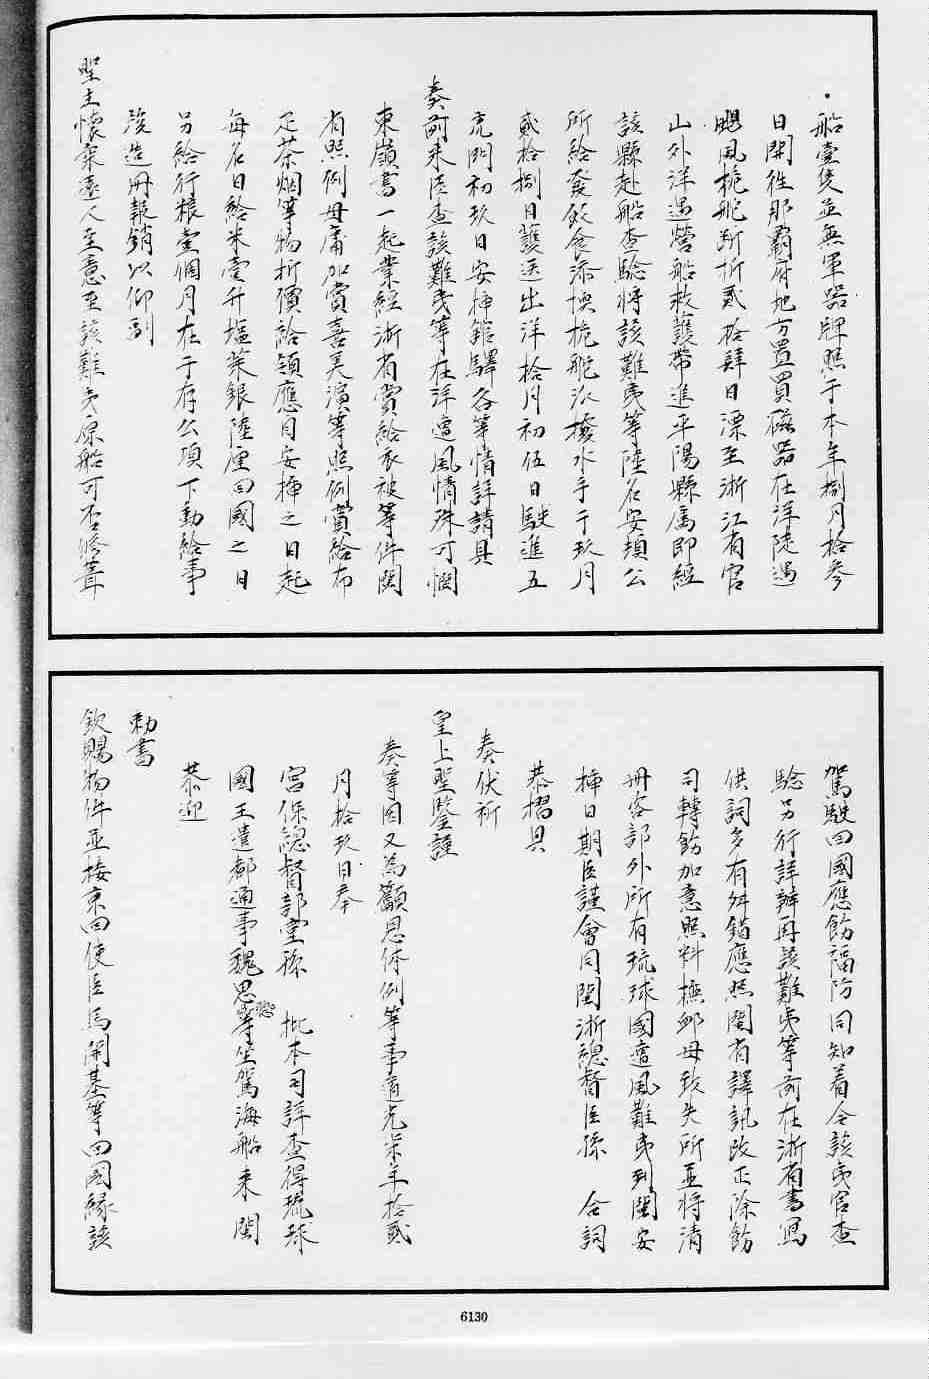 船壹隻並無軍器牌照于本年捌月拾参
日開徃那霸府地方置買磁器在洋陡遇
颶風桅舵斷折貳拾肆日漂至浙江省官
山外洋遇營船救護帶進平陽縣属即經
該縣赴船查驗將該難夷等陸名安頓公
所給發飲食添換桅舵派撥水手于玖月
貳拾捌日護送出洋拾月初伍日駛進五
虎門初玖日安挿舘驛各等情詳請具
奏前来臣查該難夷等在洋遭風情殊可憫
東嶺書一起業經浙省賞給衣被等件閩
省照例毋庸加賞喜美濱等照例賞給布
疋茶烟等物折價給領應自安挿之日起
每名日給米壹升塩菜銀陸厘回國之日
另給行粮壹個月在于存公項下動給事
浚造册報銷以仰副
聖主懷柔遠人至意至該難夷原船可否修葺
駕駛回國應飭福防同知着令該夷官查
驗另行詳辦再該難夷等前在浙省書寫
供詞多有舛錯應照閩省譯訊改正除飭
司轉飭加意照料撫卹毋致失所並將清
册咨部外所有琉球國遭風難夷到閩安
挿日期臣謹會同閩浙總督臣孫　合詞
恭摺具
奏伏祈
皇上聖鑒謹
奏等因又為籲恩俯例等事道光柒年拾貳
月拾玖日奉
宮保總督部堂孫　批本司詳查得琉球
國王遣都通事魏思等坐駕海船来閩
恭迎
勅書
欽賜物件並接京回使臣馬開基等回國緣該
6130